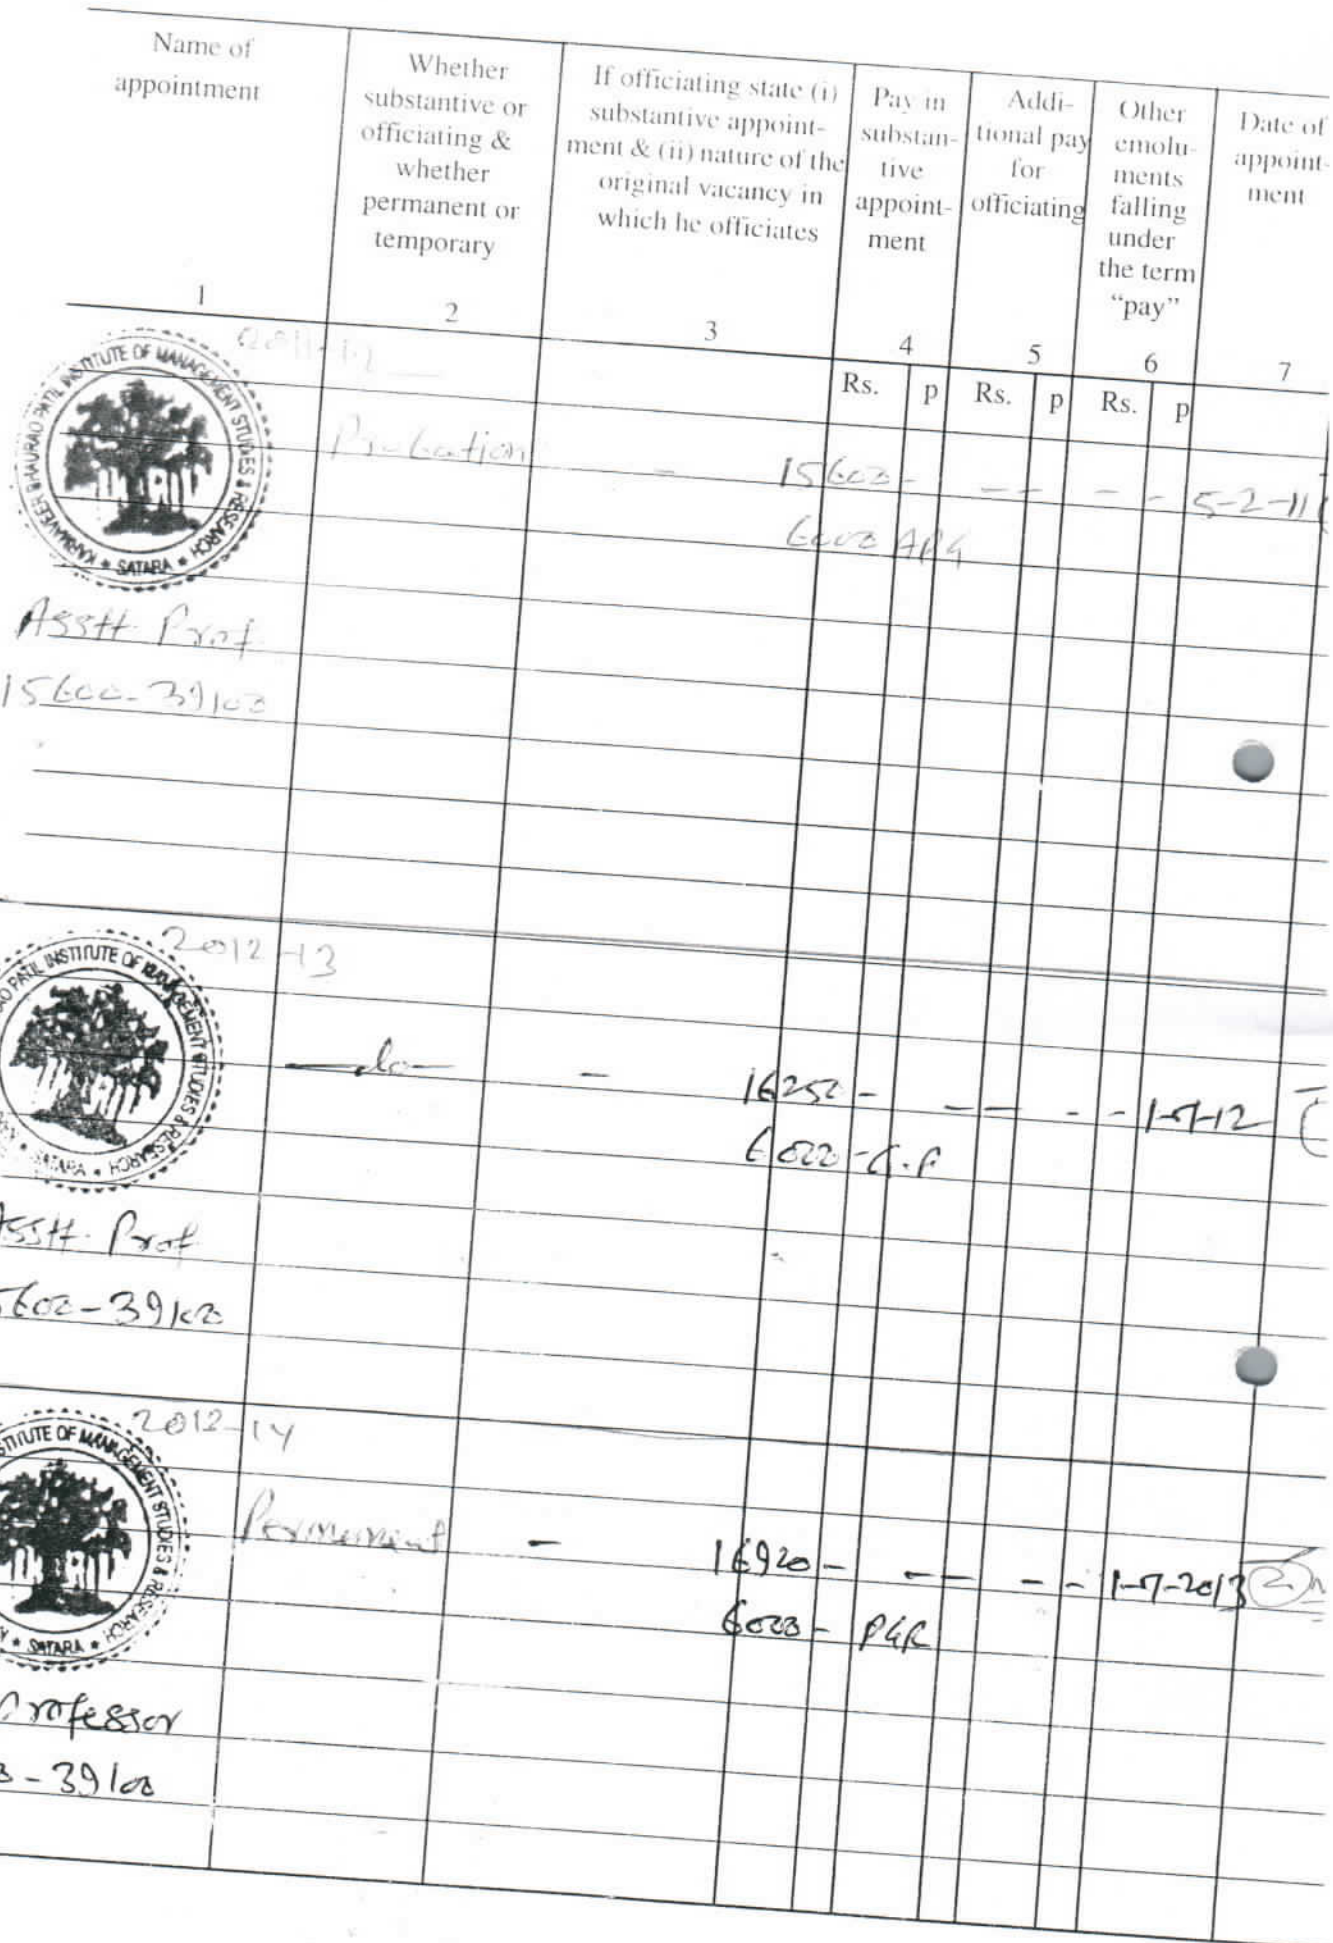 Name of appointment
Whether substantive or officiating & whether permanent or temporary
If officiating state (i) substantive appoint-ment & (ii) nature of the original vacancy in which he officiates
Pay in substan-tive appoint-ment
Addi-tional pay for officiating
Other emolu-ments falling under the term "pay"
Date of appoint-ment
1 2 3 4 5 6 7
Rs. p Rs. p Rs. p
2011-12
KARMAVEER BHAURAO PATIL INSTITUTE OF MANAGEMENT STUDIES & RESEARCH * SATARA *
Probation - 15600 - - - - - 5-2-11
6000
Asstt. Prof.
15600-39100
2012-13
PATIL INSTITUTE OF MANAGEMENT STUDIES & RESEARCH * SATARA *
-do- - 16250 - - - - - 1-7-12
6000 - G.P
Asstt. Prof
5600-39100
2013-14
STITUTE OF MANAGEMENT STUDIES & RESEARCH * SATARA *
Permanent - 16920 - - - - - 1-7-2013
6000 -
Professor
- 39100